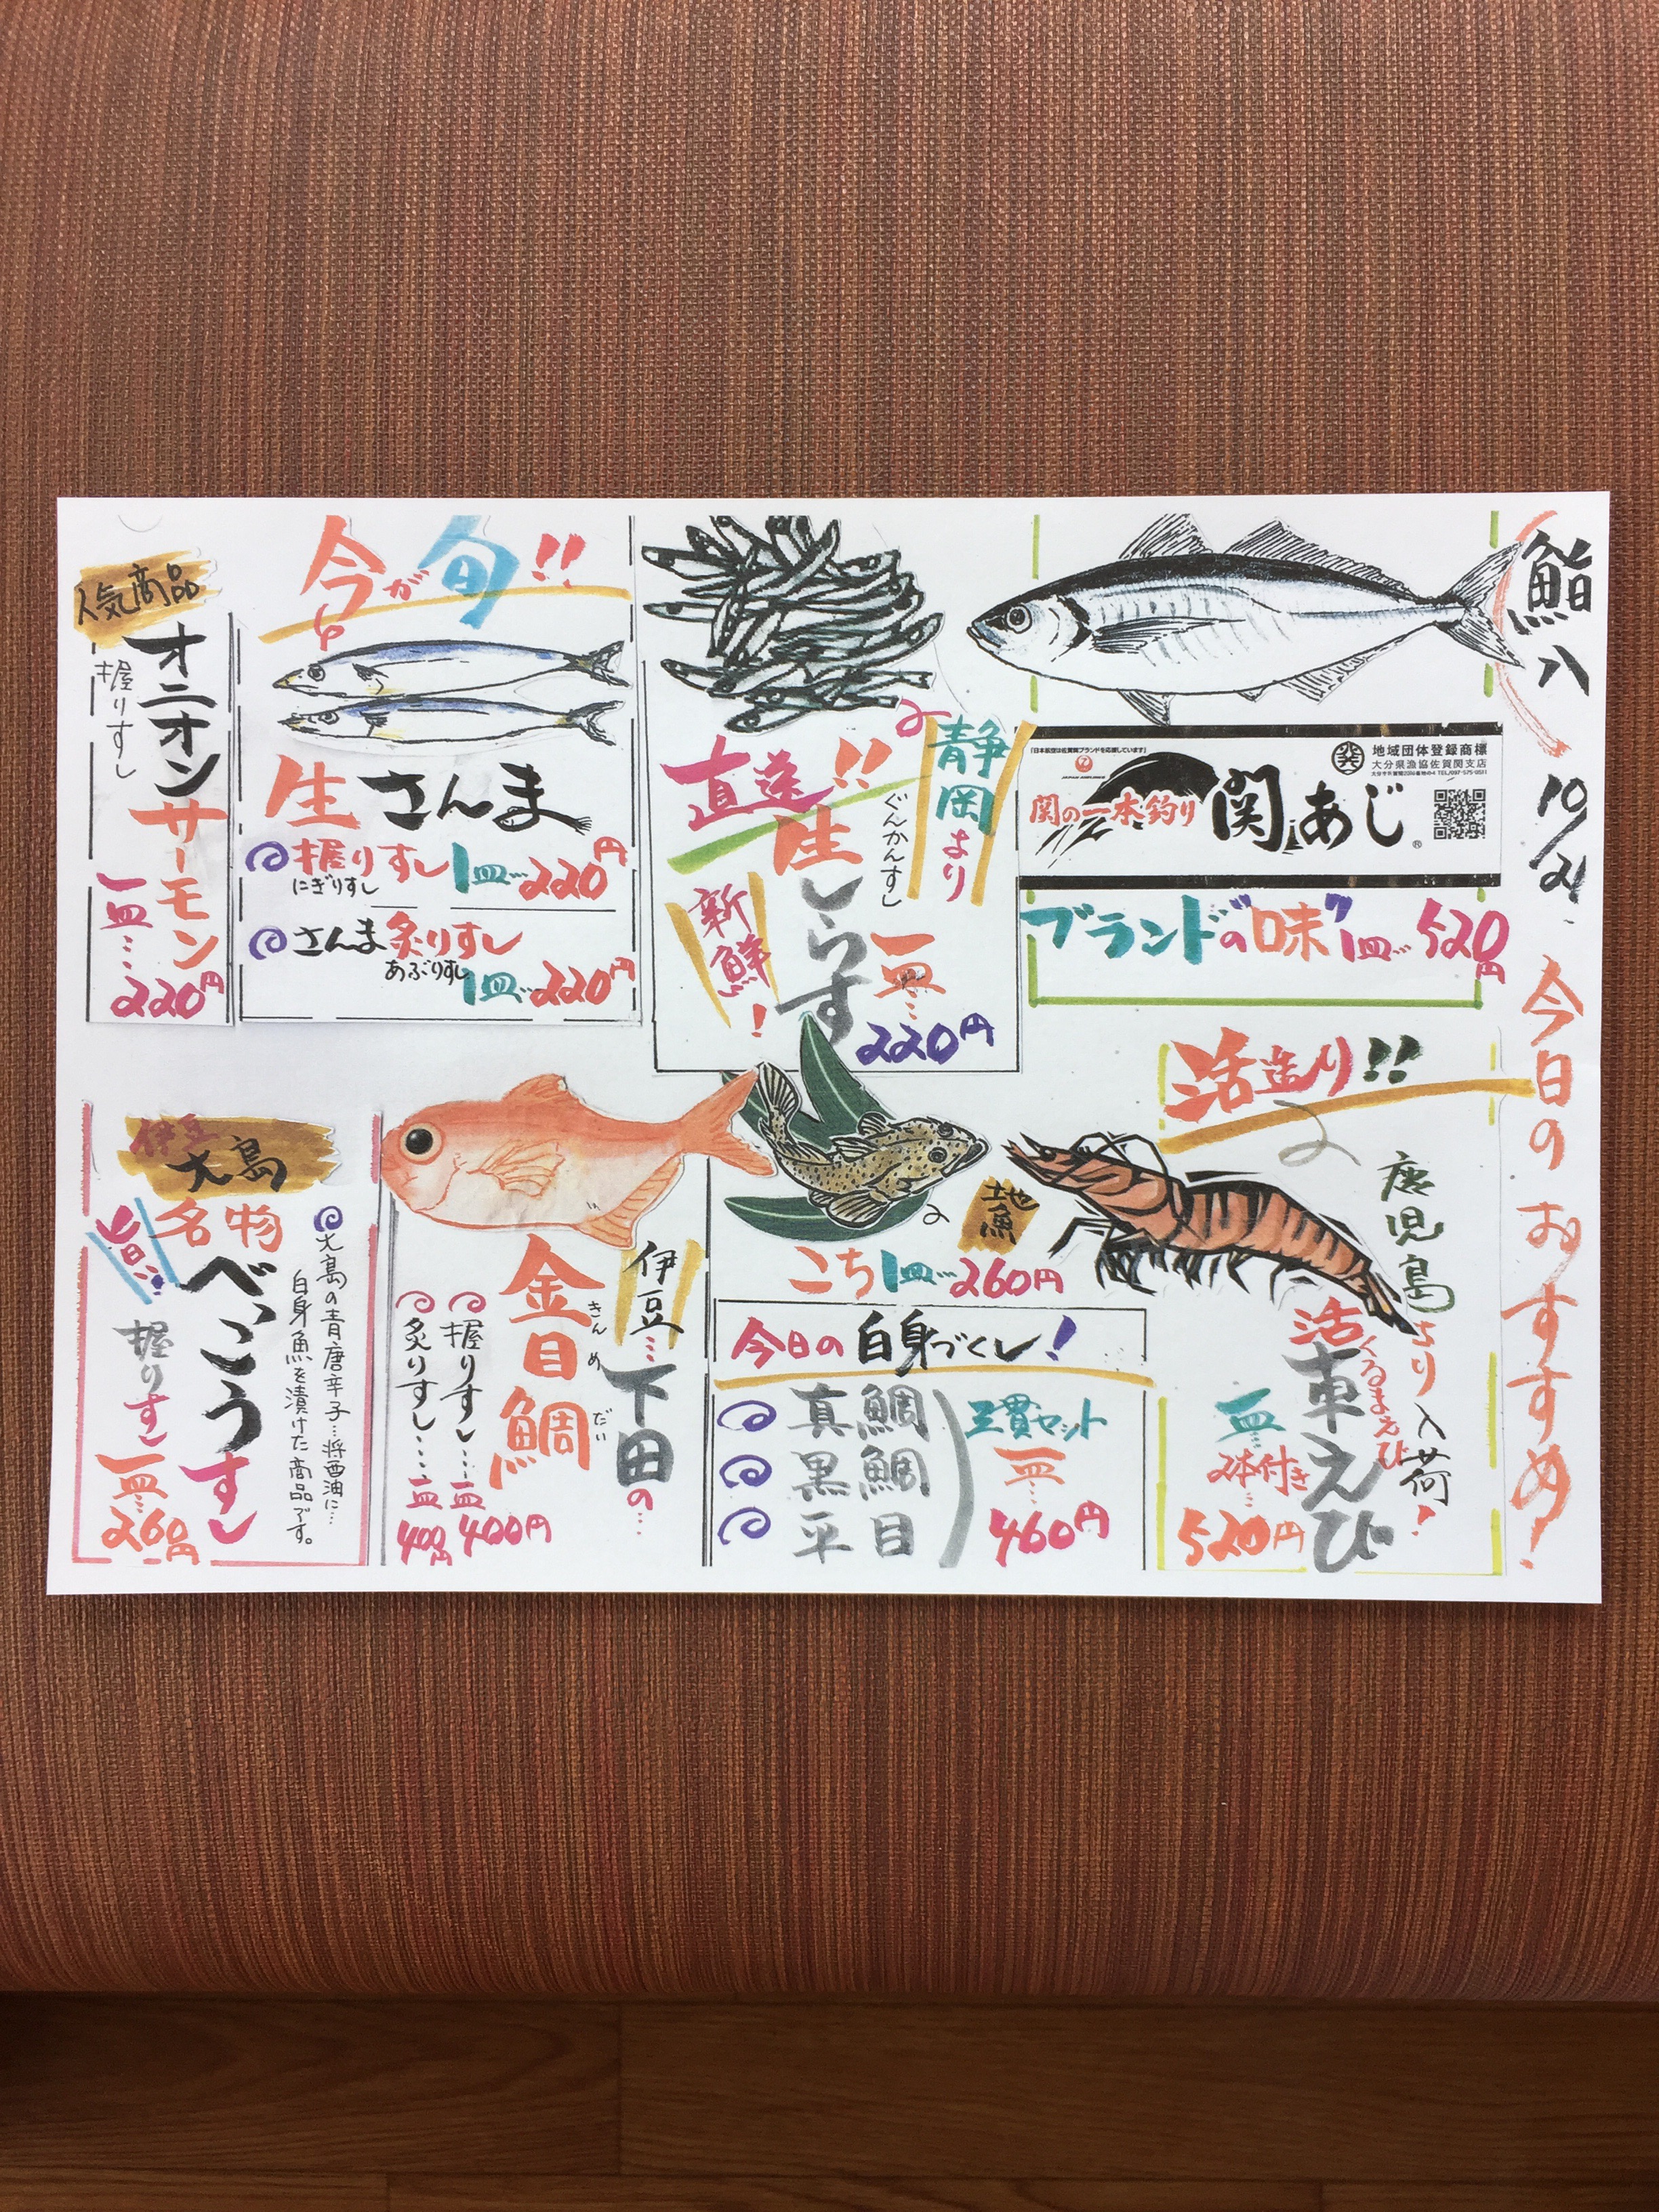 鮨八
10/21
今日のおすすめ!
「日本航空は佐賀関ブランドを応援しています」
JAPAN AIRLINES
地域団体登録商標
大分県漁協佐賀関支店
関の一本釣り
関あじ
ブランドの"味"1皿…520円
静岡より
直送!!
ぐんかんすし
生しらす
新鮮!
一皿…
220円
今が旬!!
生さんま
握りすし 1皿…220円
にぎりすし
さんま炙りすし
あぶりすし
1皿…220円
人気商品
オニオンサーモン
握りすし
一皿…
220円
活造り!!
鹿児島より入荷!
活車えび
くるまえび
一皿…
2本付き
520円
地魚
こち1皿…260円
今日の白身づくし!
真鯛
黒鯛
平目
三貫セット
一皿…
460円
伊豆…
下田の…
金目鯛
きんめだい
握りすし…一皿400円
炙りすし…一皿400円
伊豆大島
名物
べっこうすし
旨い
握りすし
一皿…
260円
大島の青唐辛子…醤油に…
白身魚を漬けた商品です。